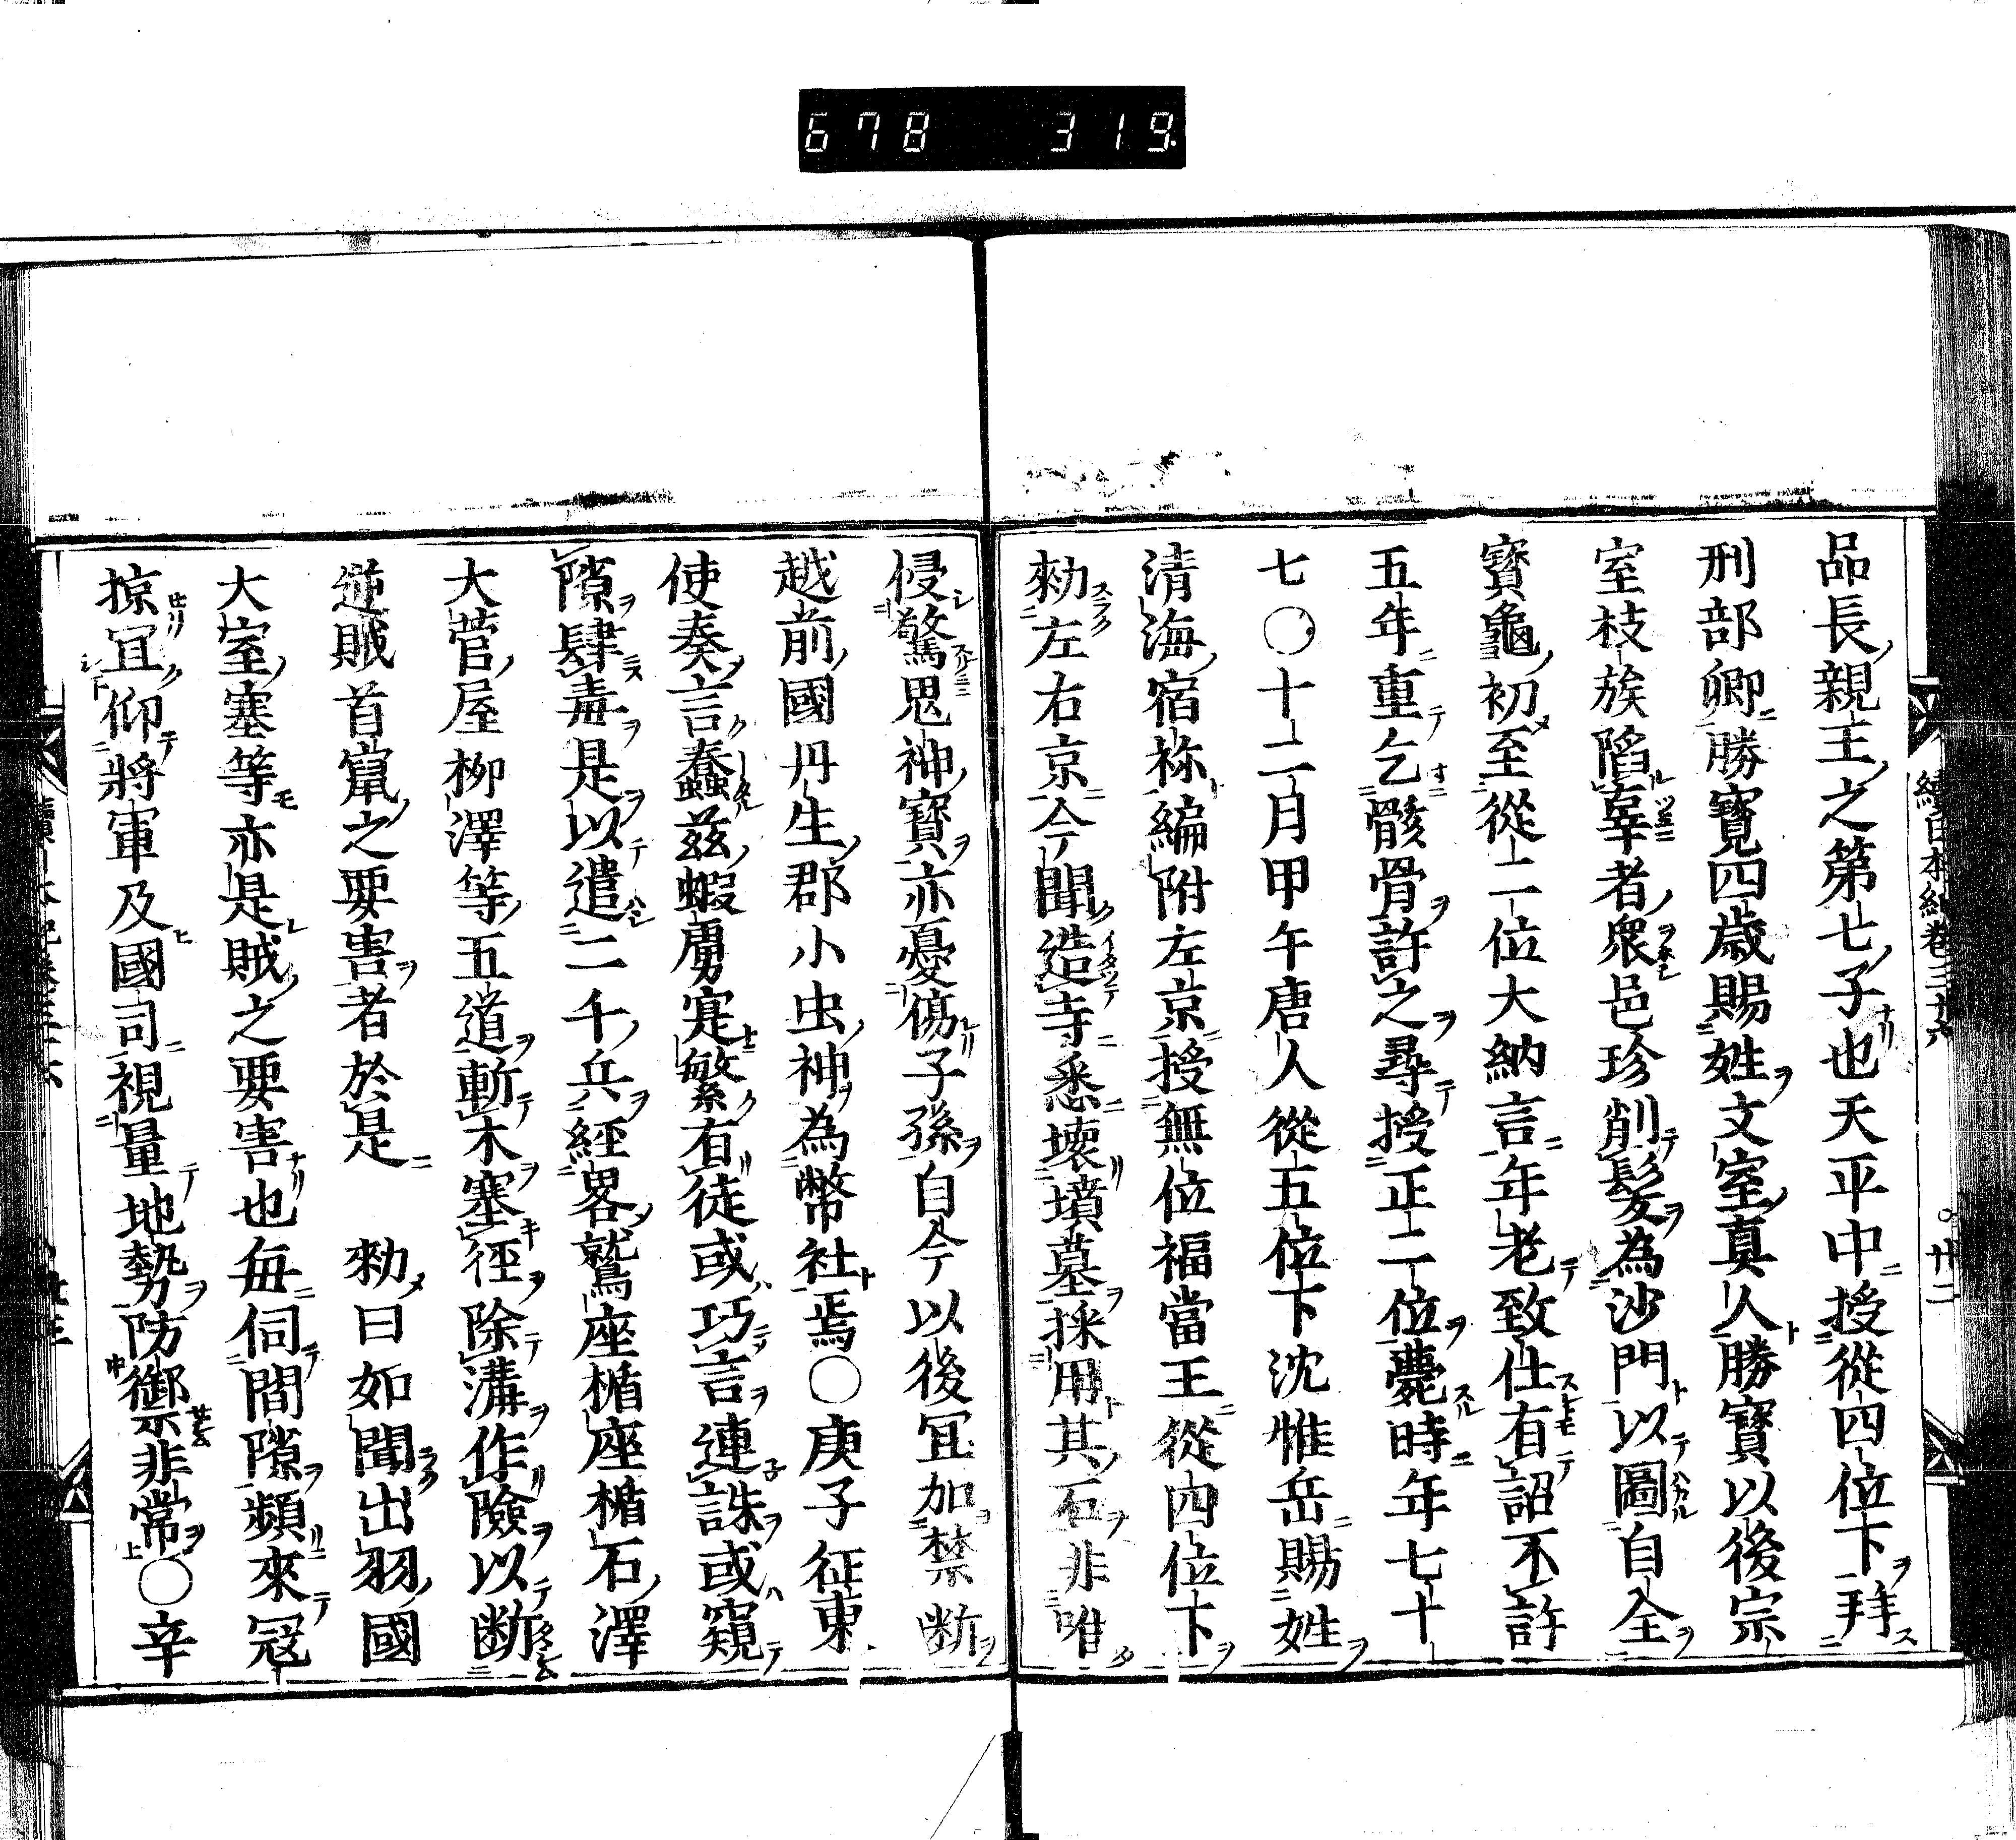 678 319
續日本紀卷三十六
廿二
品長親王之第七子也天平中授從四位下拜
刑部卿勝寶四歲賜姓文室真人勝寶以後宗
室枝族陷辜者衆邑珍削髮為沙門以圖自全
寶龜初至從二位大納言年老致仕有詔不許
五年重乞骸骨許之尋授正二位薨時年七十
七○十二月甲午唐人從五位下沈惟岳賜姓
清海宿祢編附左京授無位福當王從四位下
勑左右京今聞造寺悉壞墳墓採用其石非唯
侵驚鬼神寶亦憂傷子孫自今以後冝加禁斷
越前國丹生郡小虫神為幣社焉○庚子征東
使奏言蠢茲蝦虜寔繁有徒或巧言連誅或窺
隙肆毒是以遣二千兵經畧鷲座楯座楯石澤
大菅屋柳澤等五道斬木塞徑除溝作險以斷
逆賊首竄之要害者於是 勑曰如聞出羽國
大室塞等亦是賊之要害也每伺間隙頻來寇
掠冝仰將軍及國司視量地勢防禦非常○辛